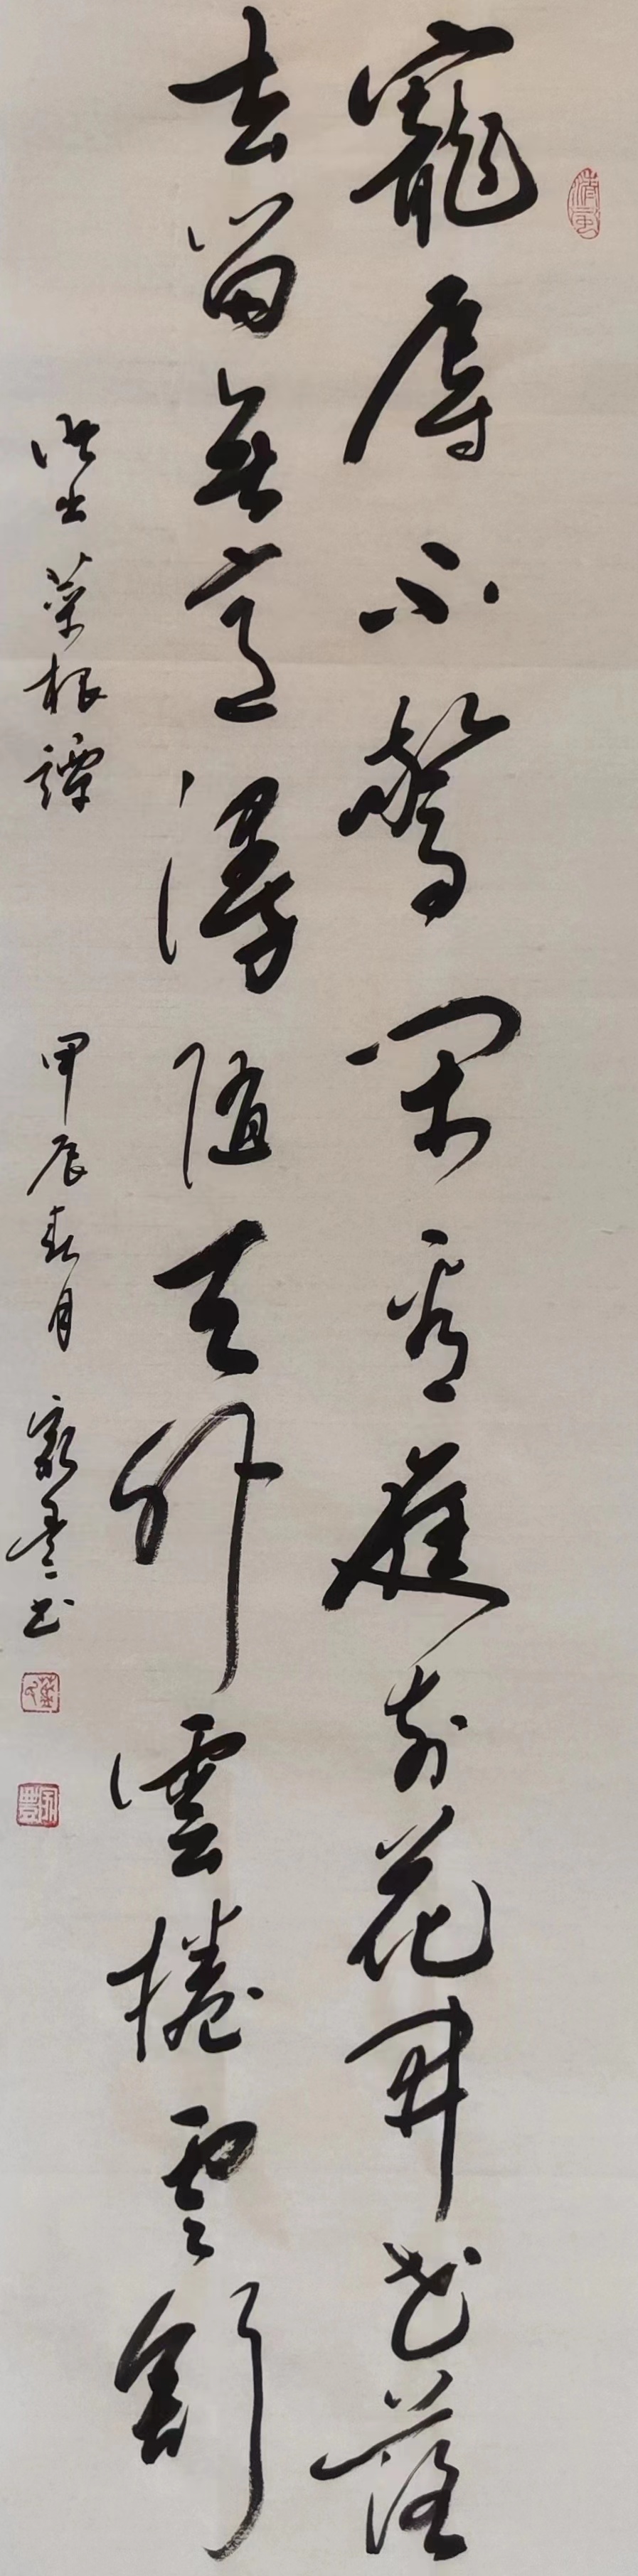 寵辱不驚閑看庭前花開花落
去留無意漫隨天外雲捲雲舒
語出菜根譚 甲辰春月 家豐書